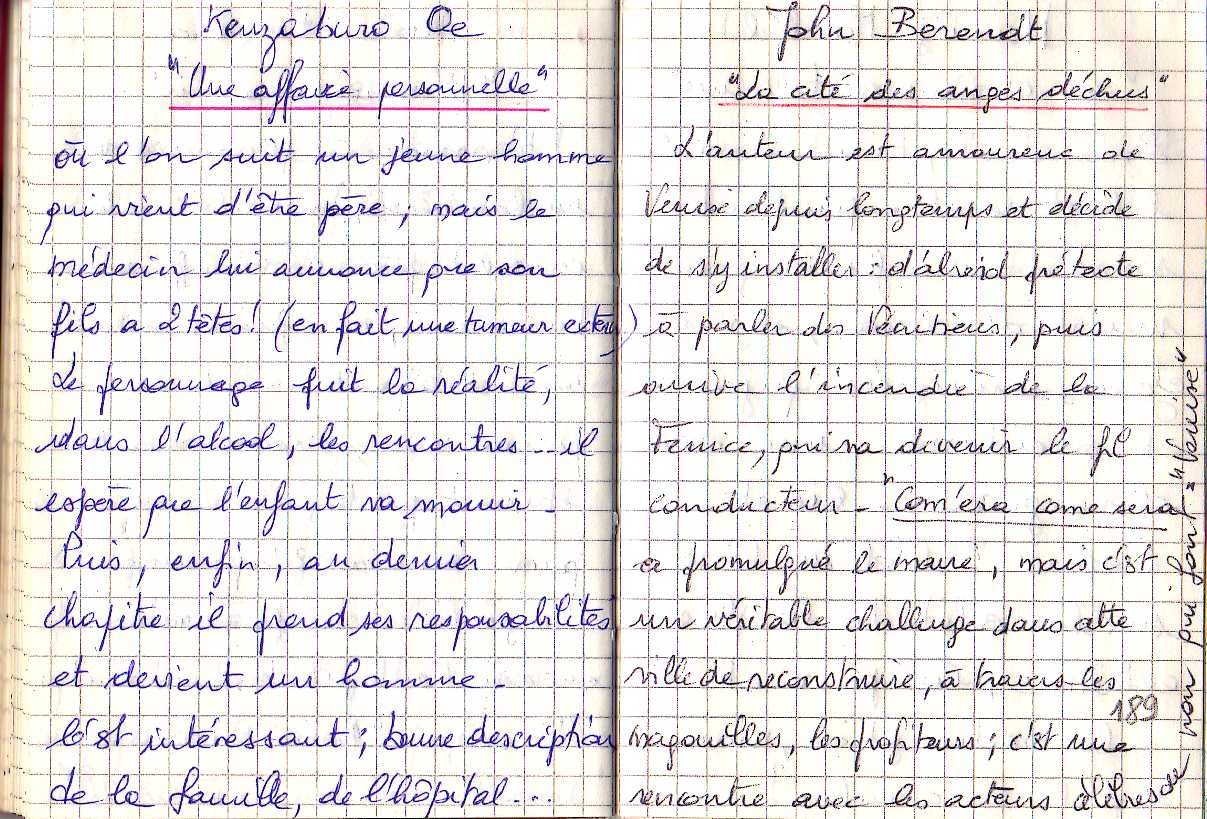 Kenzaburo Oe
"Une affaire personnelle"
où l'on suit un jeune homme
qui vient d'être père ; mais le
médecin lui annonce que son
fils a 2 têtes ! (en fait, une tumeur externe)
Le personnage fuit la réalité,
dans l'alcool, les rencontres... il
espère que l'enfant va mourir.
Puis, enfin, au dernier
chapitre il prend ses responsabilités
et devient un homme.
C'est intéressant ; bonne description
de la famille, de l'hôpital...
John Berendt
"La cité des anges déchus"
L'auteur est amoureux de
Venise depuis longtemps et décide
de s'y installer : d'abord prétexte
à parler des Vénitiens, puis
arrive l'incendie de la
Fenice, qui va devenir le fil
conducteur - "Com'era come sera
a promulgué le maire, mais c'est
un véritable challenge dans cette
ville de reconstruire, à travers les
magouilles, les profiteurs ; c'est une
rencontre avec les acteurs célèbres
ou non qui font "Venise"
189